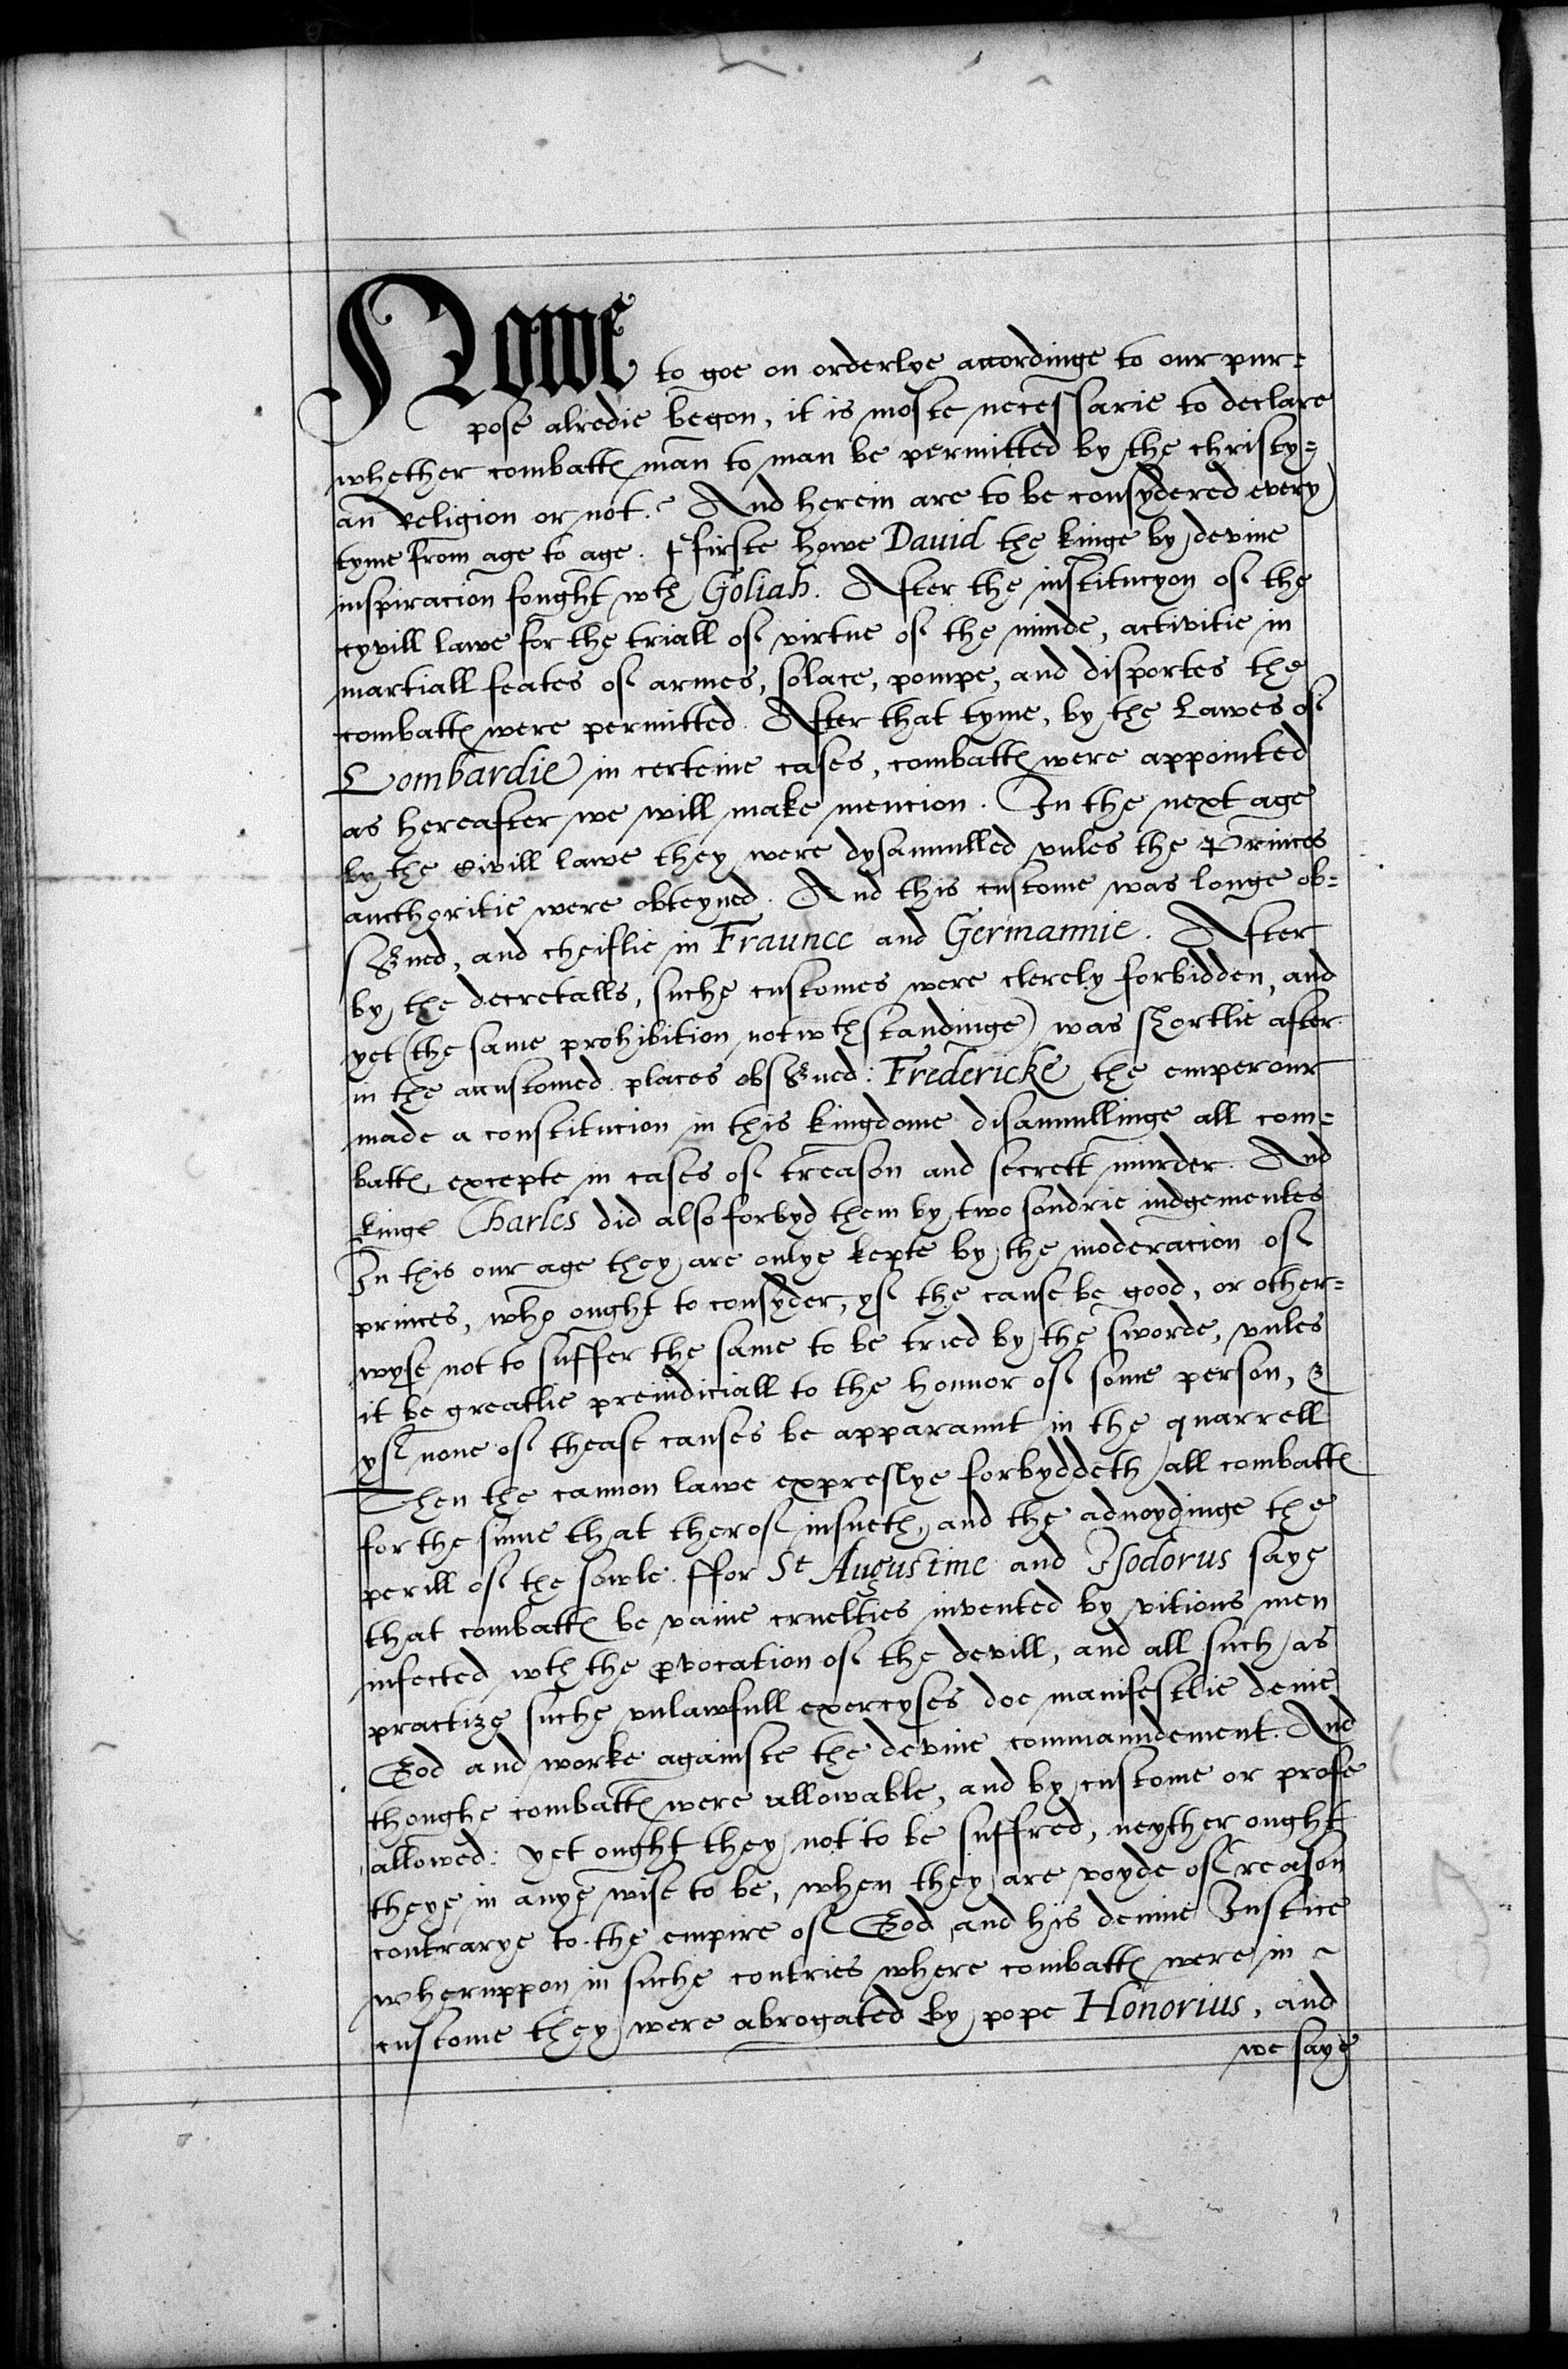 Nowe to goe on orderlye accordinge to our pur=
pose alredie begon, it is moste necessarie to declare
whether combattes man to man be permitted by the christy=
an religion or not. And herein are to be consydered every
tyme from age to age. ffirste howe Dauid the kinge by devine
inspiracion fought wth Goliah. After the institucyon of the
cyvill lawe for the triall of virtue of the minde, activitie in
martiall feates of armes, solace, pompe, and disportes the
combattes were permitted. After that tyme, by the Lawes of
Lombardie in certeine cases, combattes were appointed
as hereafter we will make mencion. In the next age
by the Civill lawe they were dysannulled vnles the Princes
aucthoritie were obteyned. And this custome was longe ob=
served, and cheiflie in Fraunce and Germannie. After
by the decretalls, suche customes were clerely forbidden, and
yet (the same prohibition notwthstandinge) was shortlie after
in the accustomed places observed: Fredericke the emperour
made a constitucion in this kingdome disannullinge all com=
battes excepte in cases of treason and secrett murder. And
kinge Charles did also forbyd them by two sondrie iudgementes
In this our age they are onlye kepte by the moderacion of
princes, who ought to consyder, yf the cause be good, or other=
wyse not to suffer the same to be tried by the sworde, vnles
it be greatlie preiudiciall to the honnor of some person, &
yf none of thease causes be apparaunt in the quarrell
Then the cannon lawe expreslye forbyddeth all combattes
for the sinne that therof insueth, and the aduoydinge the
perill of the sowle. ffor St Augustine and Isodorus saye
that combattes be vaine cruelties invented by vitious men
infected wth the provocation of the devill, and all such as
practize suche vnlawfull exercyses doe manifestlie denie
God and worke againste the devine commaundement. And
thoughe combattes were allowable, and by custome or profe
allowed: yet ought they not to be suffred, neyther ought
theye in anye wise to be, when they are voyde of reason
contrarye to the empire of God and his deuine Iustice
wheruppon in suche contries where combattes were in ~
custome they were abrogated by pope Honorius, and
we saye